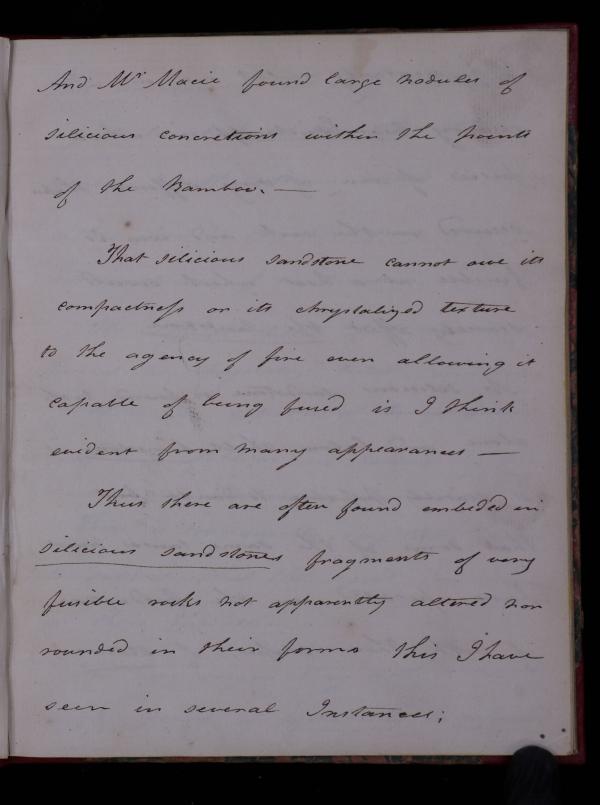 And Mr Macie found large nodules of
silicious concretions within the joints
of the Bamboo. —
That silicious sandstone cannot owe its
compactness or its chrystalized texture
to the agency of fire even allowing it
capable of being fused is I think
evident from many appearances —
Thus there are often found embeded in
silicious sandstones fragments of very
fusible rocks not apparently altered nor
rounded in their forms this I have
seen in several Instances;